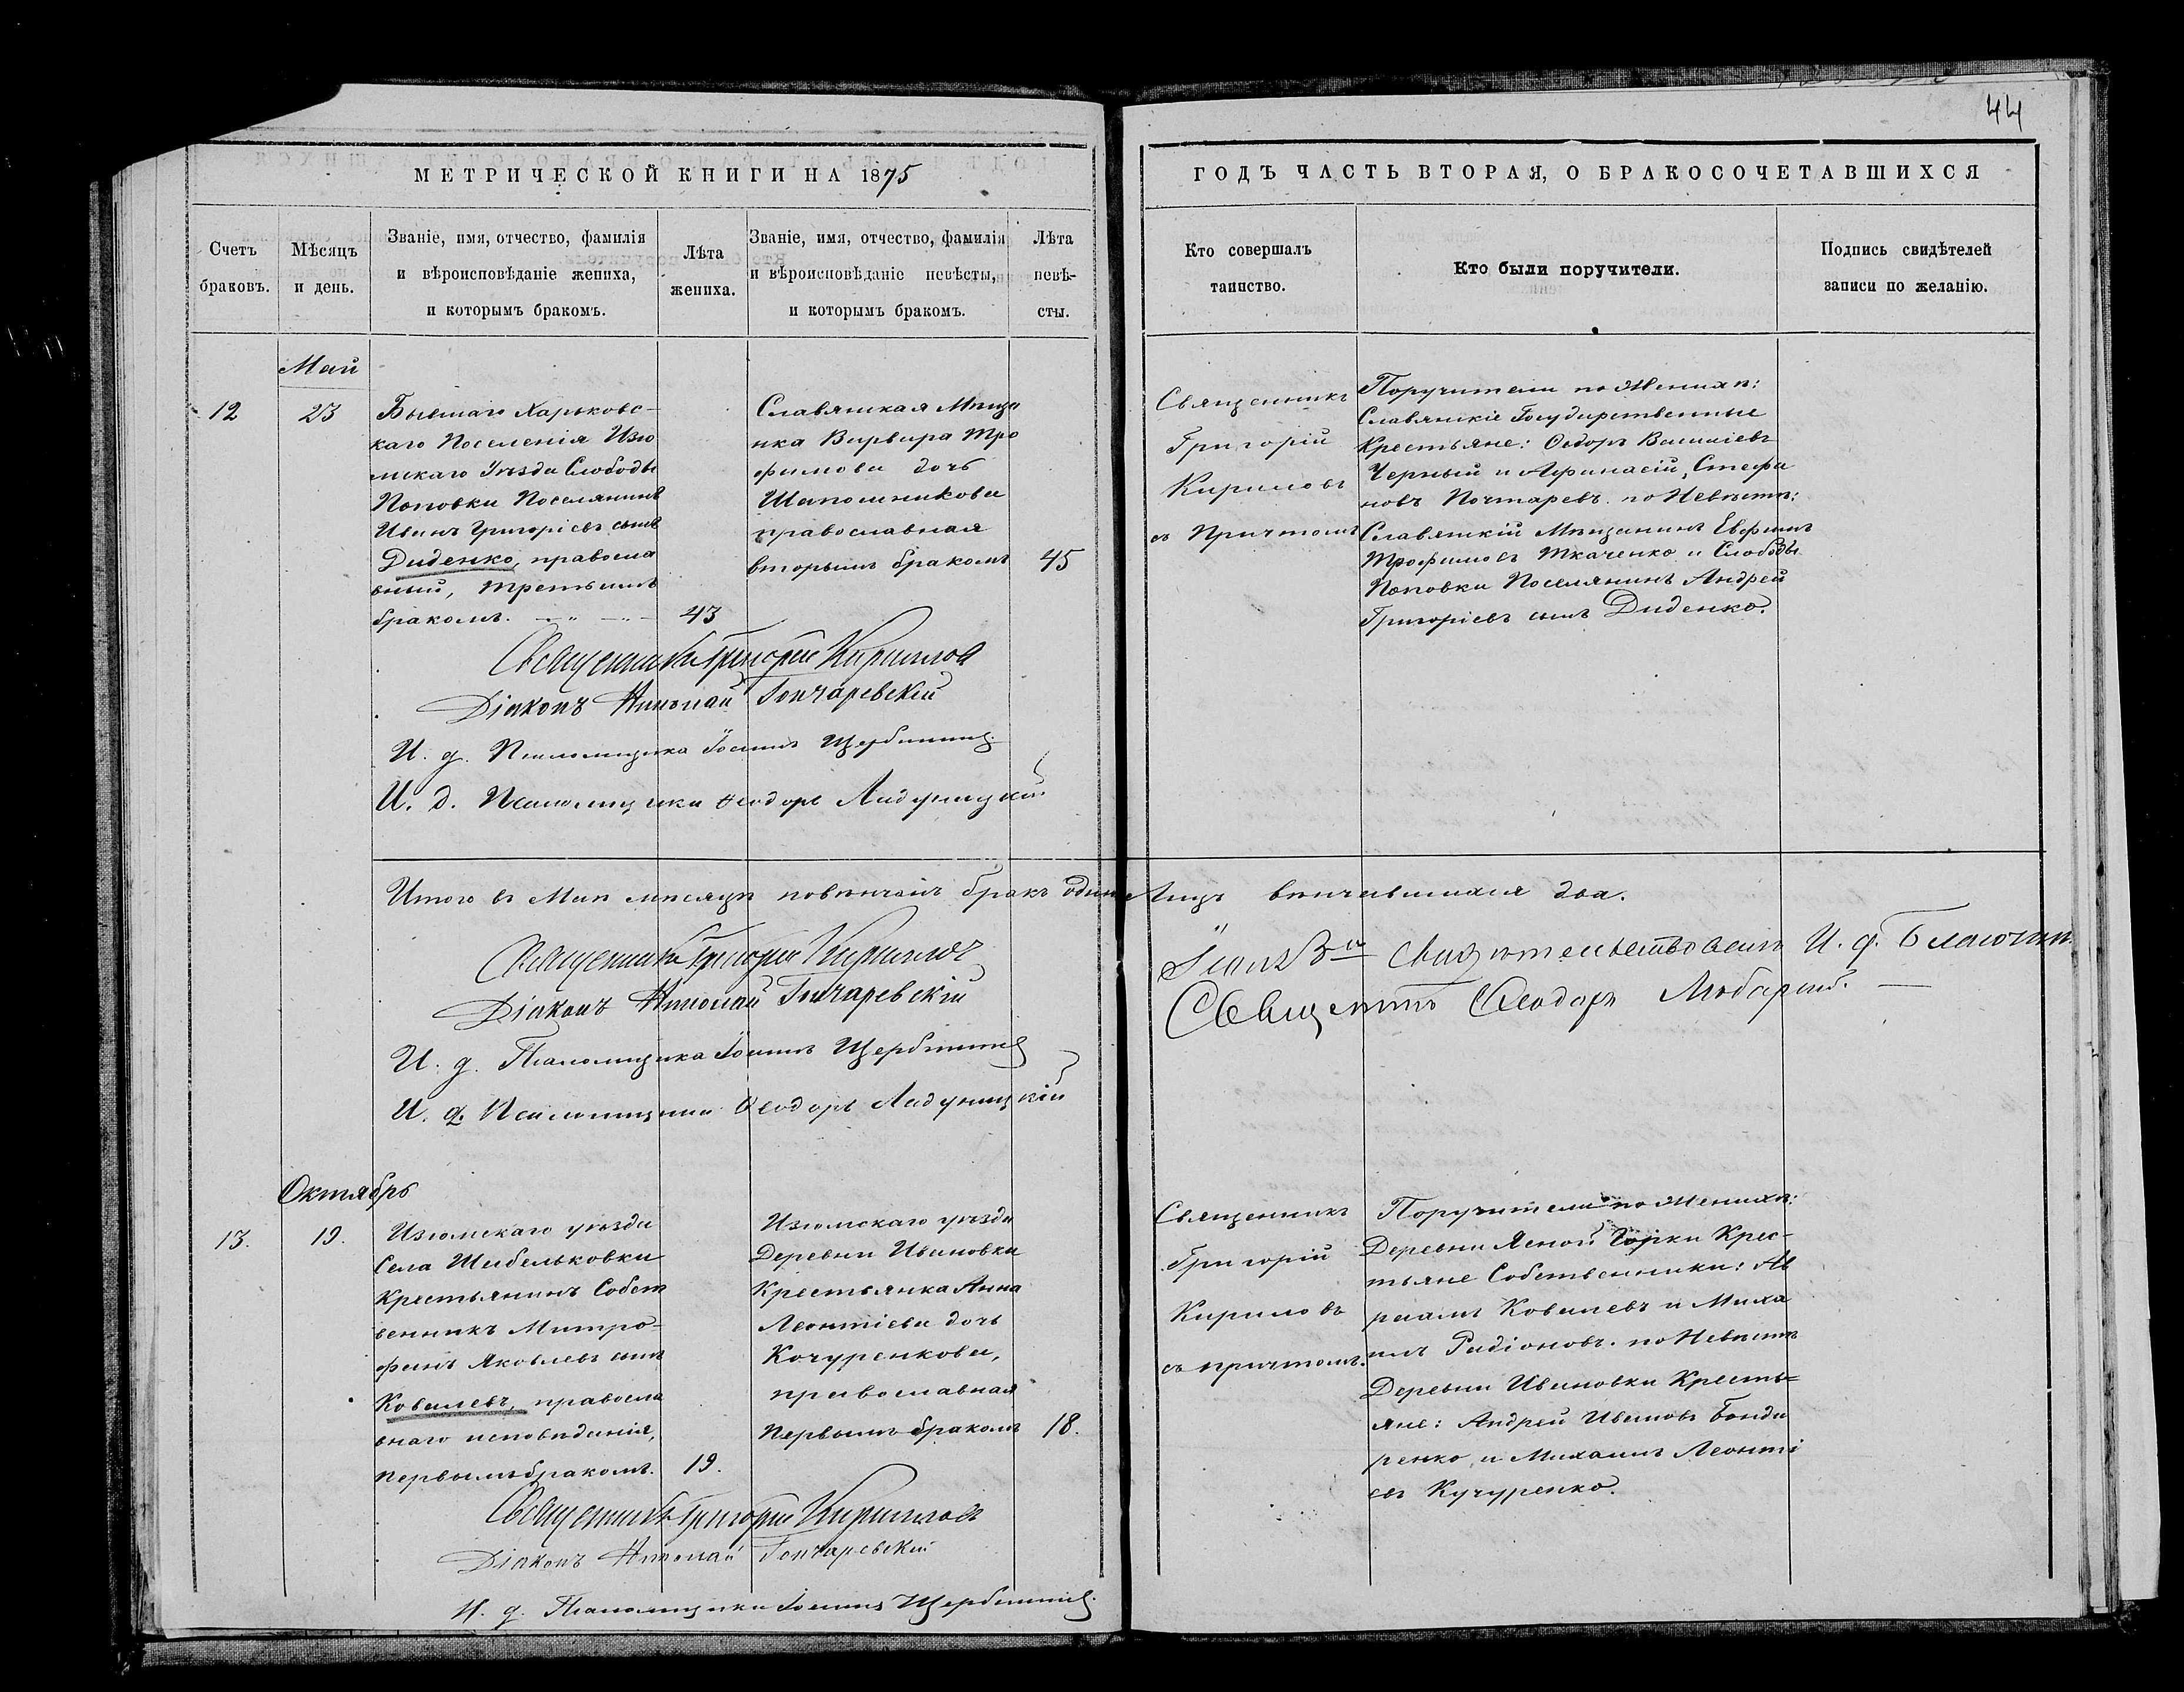 44
МЕТРИЧЕСКОЙ КНИГИ НА 1875
ГОДЪ ЧАСТЬ ВТОРАЯ, О БРАКОСОЧЕТАВШИХСЯ
Счетъ
браковъ.
Мѣсяцъ
и день.
Званіе, имя, отчество, фамилія
и вѣроисповѣданіе жениха,
и которымъ бракомъ.
Лѣта
жениха.
Званіе, имя, отчество, фамилія
и вѣроисповѣданіе невѣсты,
и которымъ бракомъ.
Лѣта
невѣ-
сты.
Кто совершалъ
таинство.
Кто были поручители.
Подпись свидѣтелей
записи по желанію.
Май
12
23
Бывшаго Харьковс-
каго Поселенія Изю
мскаго Уѣзда Слободы
Поповки Поселянинъ
Иванъ Григоріевъ сынъ
Диденко, правосла
вный, третьимъ
бракомъ.
43
Славянская Мѣща
нка Варвара Тро
фимова дочь
Шапошникова
православная
вторымъ бракомъ
45
Священникъ
Григорій
Кириловъ
съ Причтомъ
Поручители по Женихѣ:
Славянскіе Государственные
Крестьяне: Ѳедоръ Василіевъ
Черный и Афанасій Стефа
новъ Почтаревъ. по Невѣстѣ:
Славянскій Мѣщанинъ Евфимъ
Трофимовъ Ткаченко и Слободы
Поповки Поселянинъ Андрей
Григоріевъ сынъ Диденко.
Священникъ Григорій Кириловъ
Діаконъ Николай Гончаревскій
И. д. Псаломщика Іоаннъ
И. д. Псаломщика Ѳеодоръ
Итого въ Маѣ мѣсяцѣ повѣнчанъ бракъ одинъ Лицъ вѣнчавшихся два.
Священникъ Григорій Кириловъ
Діаконъ Николай Гончаревскій
И. д. Псаломщика Іоаннъ
И. д. Псаломщика Ѳеодоръ
свидѣтельствовалъ И. д. Благочин.
Священникъ Ѳеодоръ
Октябрь
13.
19.
Изюмскаго уѣзда
Села Шабельковки
Крестьянинъ Собст
венникъ Митро-
фанъ Яковлевъ сынъ
Ковалевъ, правосла
внаго исповѣданія,
первымъ бракомъ.
19.
Изюмскаго уѣзда
Деревни Ивановки
Крестьянка Анна
Леонтіева дочь
Кочуренкова,
православная
первымъ бракомъ
18.
Священникъ
Григорій
Кириловъ
съ причтомъ.
Поручители по Женихѣ:
Деревни Ясной Горки Крес-
тьяне Собственники: Ав
раамъ Ковалевъ и Миха
илъ Радіоновъ. по Невѣстѣ
Деревни Ивановки Кресть=
яне: Андрей Ивановъ Бонда
ренко, и Михаилъ Леонті
евъ Кучуренко.
Священникъ Григорій Кириловъ
Діаконъ Николай Гончаревскій
И. д. Псаломщика Іоаннъ